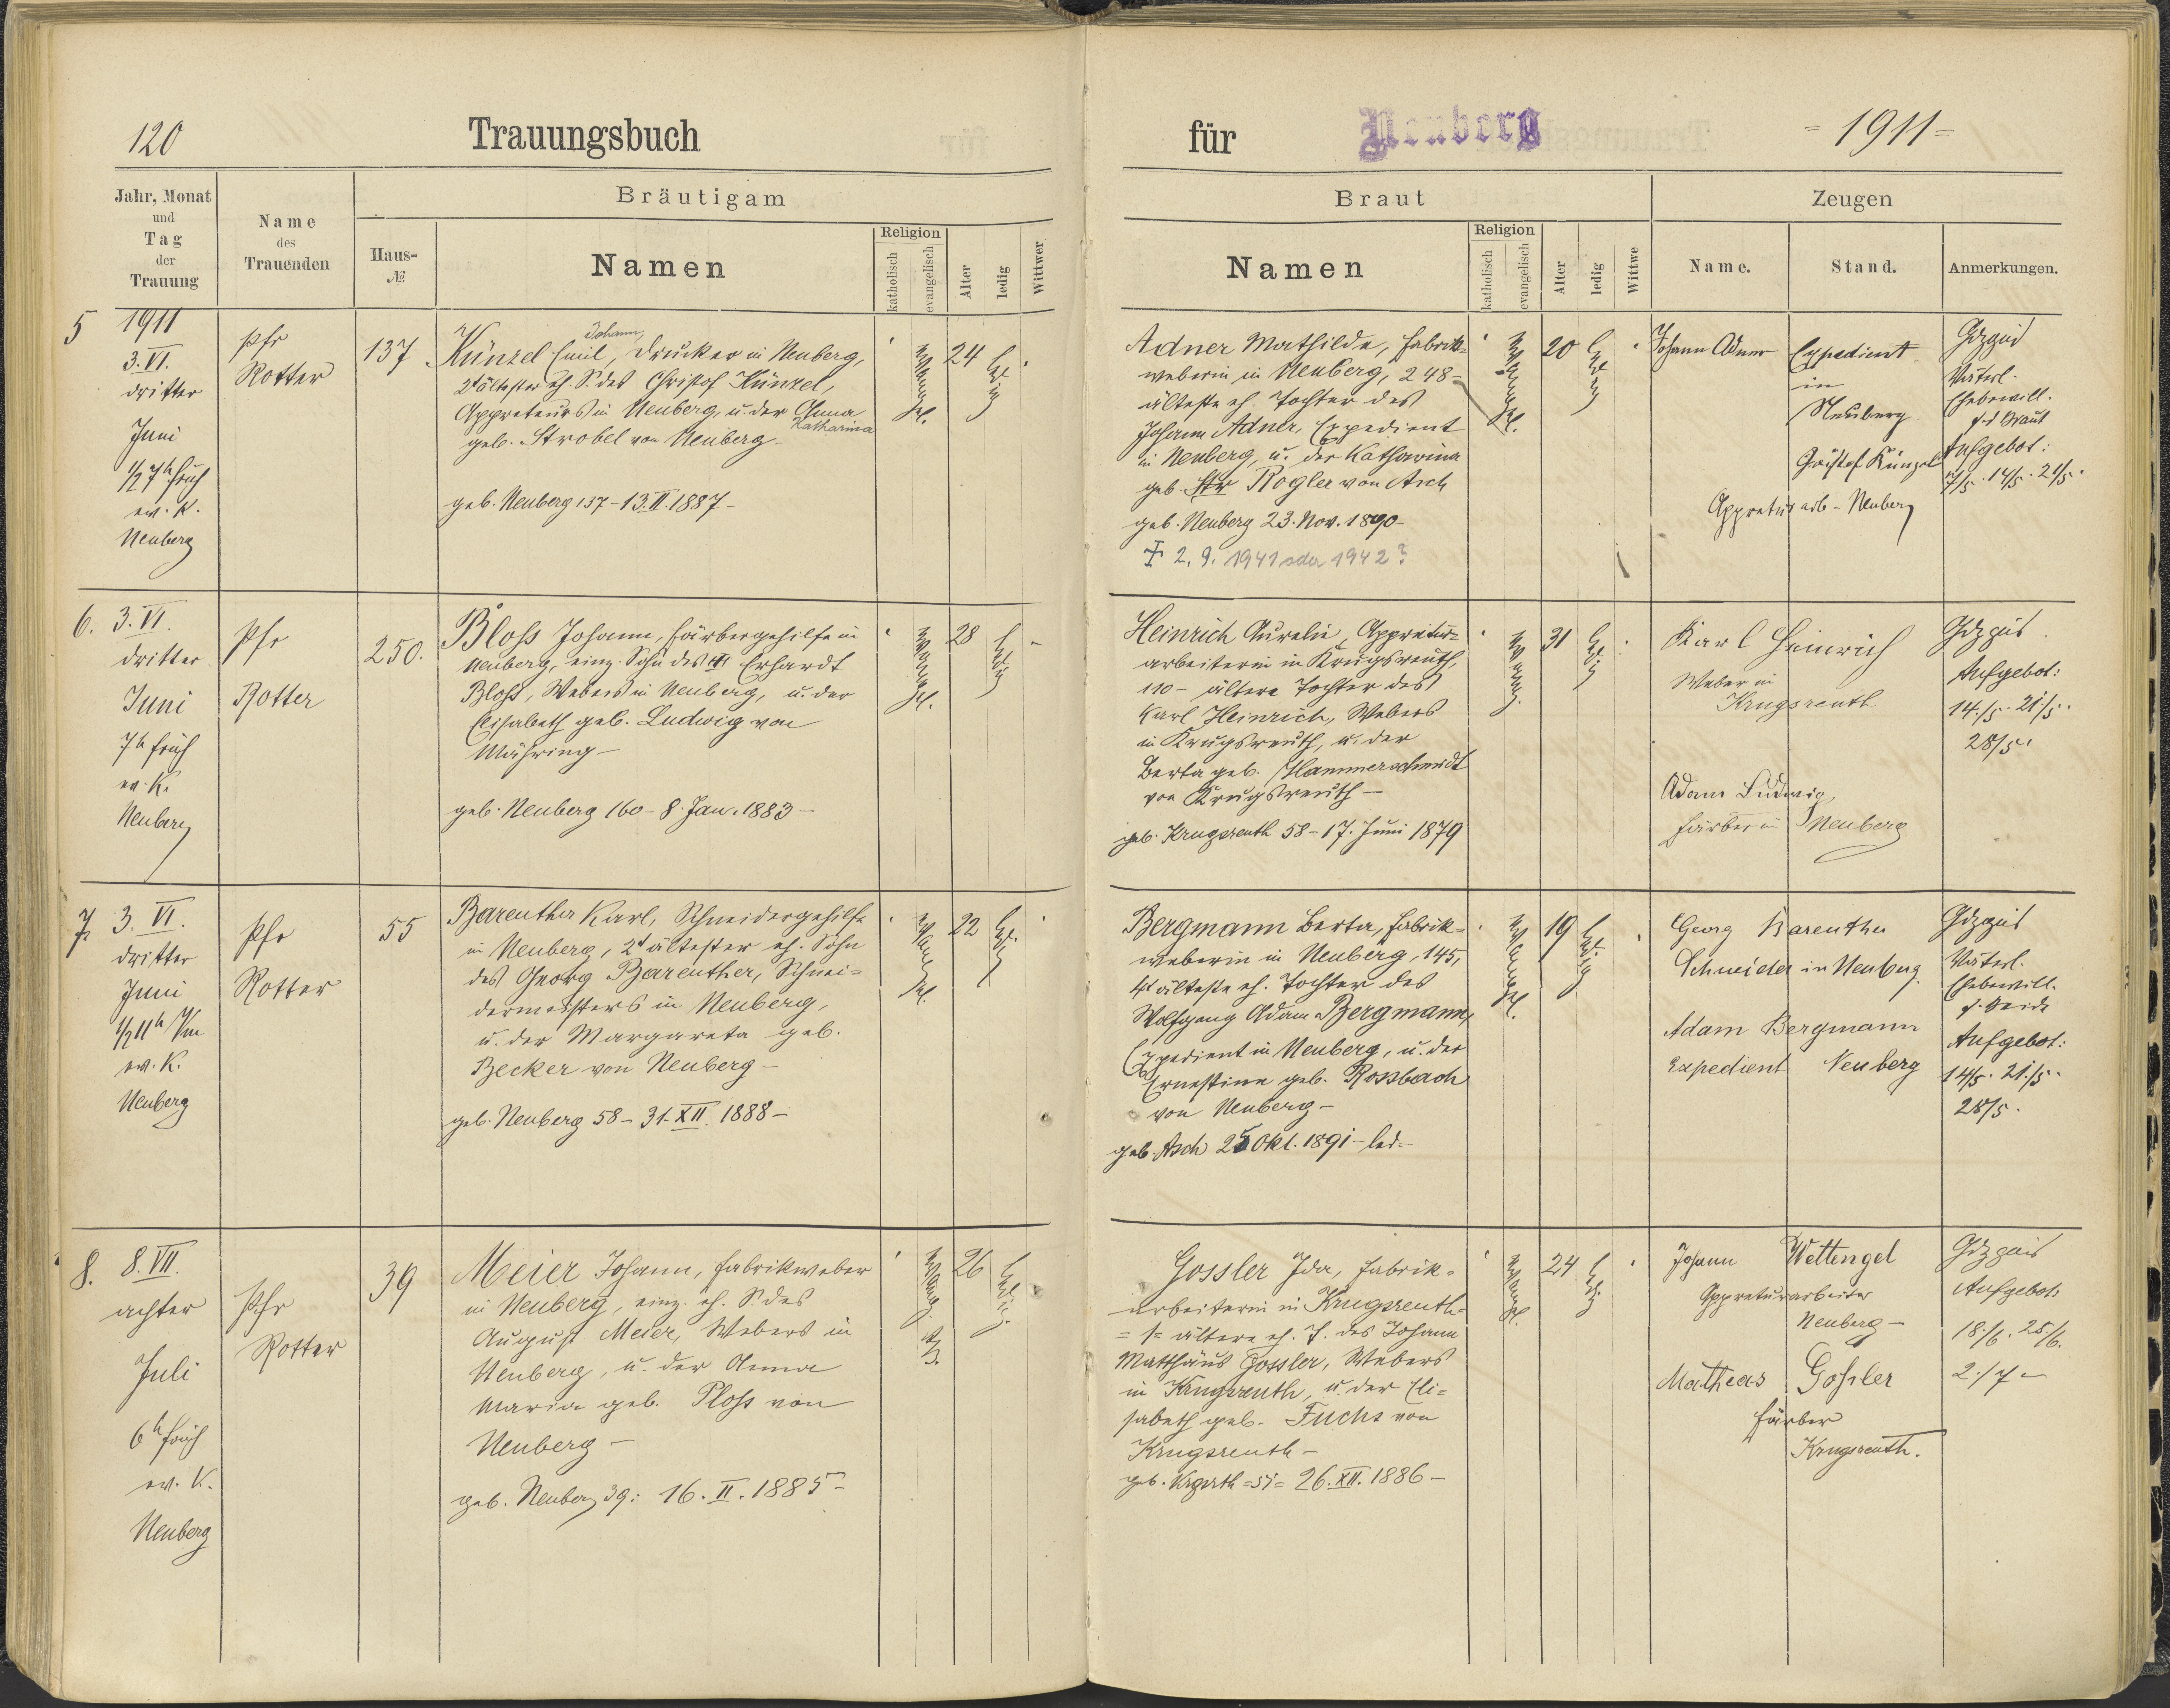 120
Trauungsbuch
für
Neuberg
= 1911 =
Jahr, Monat
und
Tag
der
Trauung
Name
des
Trauenden
Bräutigam
Haus-
№
Namen
Religion
katholisch
evangelisch
Alter
ledig
Wittwer
Braut
Namen
Religion
katholisch
evangelisch
Alter
ledig
Wittwe
Zeugen
Name.
Stand.
Anmerkungen.
5 1911
3. VI.
dritter
Juni
1/2 7h früh
ev. K.
Neuberg
Pfr
Rotter
137
Johann,
Künzel Emil, Drucker in Neuberg,
2t ältester eh. S. des Christof Künzel,
Appreteurs in Neuberg, u. der Anna
Katharina
geb. Strobel von Neuberg-
geb. Neuberg 137 - 13. II. 1887 -
evangel.
24
ledig
Adner Mathilde, Fabrik-
weberin in Neuberg, 248 -
älteste eh. Tochter des
Johann Adner, Expedient
in Neuberg, u. der Katharina
geb. Rogler von Asch
geb. Neuberg 23. Nov. 1890 -
† 2. 9. 1941 oder 1942?
evangel.
20
ledig
Johann Adner
Expedient
in
Neuberg
Christof Künzel
Appreturarb - Neuberg
Väterl.
Ehebewill.
f. d. Braut
Aufgebot:
7/5. 14/5. 21/5.
6. 3. VI.
dritter
Juni
7h früh
ev. K.
Neuberg
Pfr
Rotter
250.
Bloß Johann, Färbergehilfe in
Neuberg, einz. Sohn des Erhardt
Bloß, Webers in Neuberg, u. der
Elisabeth geb. Ludwig von
Mähring -
geb. Neuberg 160 - 8. Jan. 1883 -
evangel.
28
ledig
Heinrich Aurelie, Appretur-
arbeiterin in Krugsreuth,
110 - ältere Tochter des
Karl Heinrich, Webers
in Krugsreuth, u. der
Berta geb. Hammerschmidt
von Krugsreuth -
geb. Krugsreuth 58 - 17. Juni 1879
evang.
31
ledig
Karl Heinrich
Weber in
Krugsreuth
Adam Ludwig,
Färber in Neuberg
Aufgebot:
14./5. 21/5.
28/5.
7. 3. VI.
dritter
Juni
1/2 11h Vm
ev. K.
Neuberg
Pfr
Rotter
55
Bareuther Karl, Schneidergehilfe
in Neuberg, 2t ältester eh. Sohn
des Georg Bareuther, Schnei-
dermeisters in Neuberg,
u. der Margareta geb.
Becker von Neuberg -
geb. Neuberg 58 - 31. XII. 1888 -
evangel.
22
ledig
Bergmann Berta, Fabrik-
weberin in Neuberg, 145,
4t älteste eh. Tochter des
Wolfgang Adam Bergmann,
Expedient in Neuberg, u. der
Ernestine geb. Rossbach
von Neuberg -
geb. Asch 25 Okt. 1891 - led -
evangel.
19
ledig
Georg Bareuther
Schneider in Neuberg
Adam Bergmann
Expedient Neuberg
Väterl.
Ehebewill.
f. beide
Aufgebot:
14/5. 21./5.
28/5.
8. 8. VII.
achter
Juli
6h früh
ev. K.
Neuberg
Pfr
Rotter
39
Meier Johann, Fabrikweber
in Neuberg, einz. eh. S. des
August Meier, Webers in
Neuberg, u. der Anna
Maria geb. Ploß von
Neuberg -
geb. Neuberg 39: 16. II. 1885 -
evang.
26
ledig.
Gossler Ida, Fabrik-
arbeiterin in Krugsreuth -
= 1= ältere eh. T. des Johann
Matthäus Gossler, Webers
in Krugsreuth, u. der Eli-
sabeth geb. Fuchs von
Krugsreuth -
geb. Krgsrth = 51 = 26. XII. 1886 -
evangel.
24
ledig.
Johann Wettengel
Appreturarbeiter
Neuberg -
Matheas Goßler
Färber
Krugsreuth.
Aufgebot:
18./6. 25/6.
2./7 -